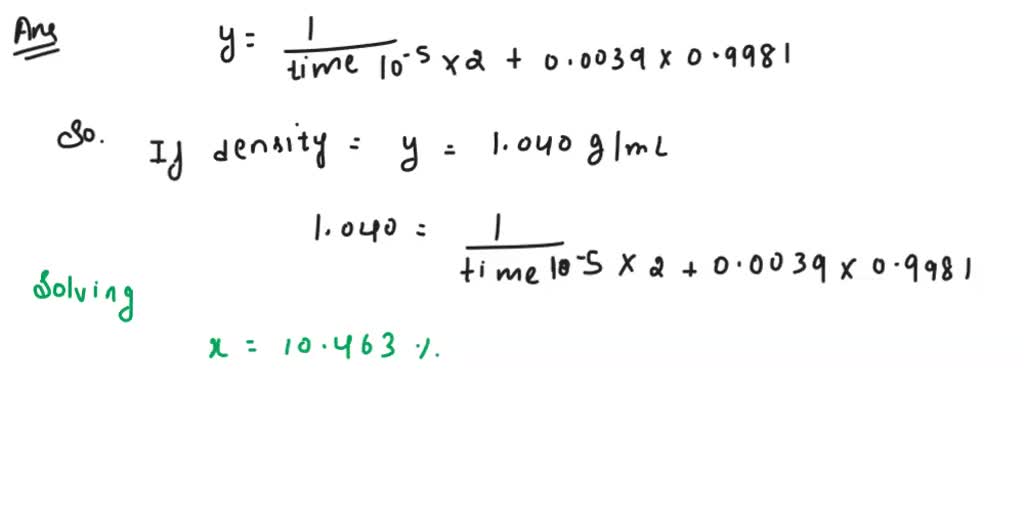 Ans
y = 1 / time 10⁻⁵ × 2 + 0.0039 × 0.9981
So. If density = y = 1.040 g/mL
1.040 = 1 / time 10⁻⁵ × 2 + 0.0039 × 0.9981
Solving
x = 10.463 %.